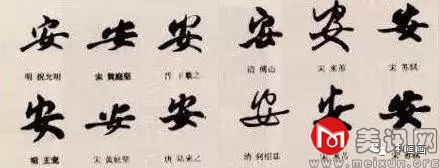 安 安 安 安 安 安
明 祝允明 宋 黄庭堅 晋 王羲之 清 傅山 宋 米芾 宋 苏轼
安 安 安 安 安 安
明 王寵 宋 黄庭堅 唐 陆柬之 清 何紹基
美讯网
www.meixun.org